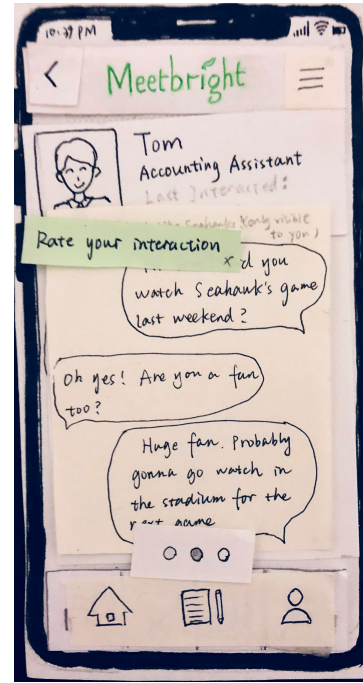 10:39 PM
Meetbright
Tom
Accounting Assistant
Last Interacted:
Seahawks (only visible
to you)
Rate your interaction
x
d you
watch Seahawk's game
last weekend?
Oh yes! Are you a fan
too?
Huge fan. Probably
gonna go watch in
the stadium for the
next game